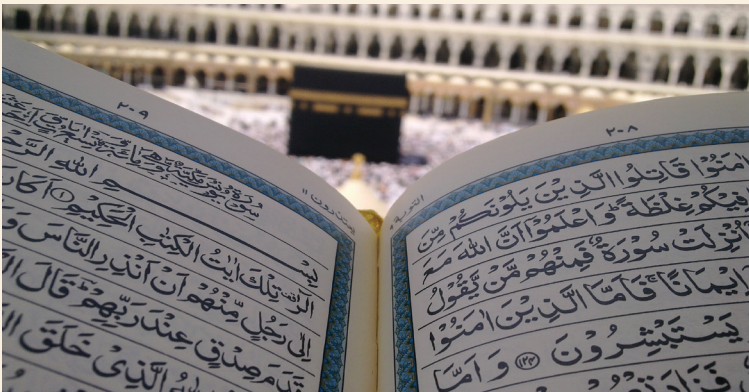 ٢٠٨
التوبة ٩
اٰمَنُوۡا قَاتِلُوا الَّذِيۡنَ يَلُوۡنَكُمۡ مِّنَ
فِيۡكُمۡ غِلۡظَةً ؕ وَاعۡلَمُوۡۤا اَنَّ اللّٰهَ مَعَ
اُنۡزِلَتۡ سُوۡرَةٌ فَمِنۡهُمۡ مَّنۡ يَّقُوۡلُ
اِيۡمَانًا ۚ فَاَمَّا الَّذِيۡنَ اٰمَنُوۡا
يَسۡتَبۡشِرُوۡنَ ﴿۱۲۴﴾ وَ اَمَّا
٢٠٩
يعتذرون ١١
بِسۡـــمِ اللّٰهِ
الٓرٰ ۟ تِلۡكَ اٰيٰتُ الۡكِتٰبِ الۡحَكِيۡمِ ﴿۱﴾ اَكَانَ
اِلٰى رَجُلٍ مِّنۡهُمۡ اَنۡ اَنۡذِرِ النَّاسَ وَ
قَدَمَ صِدۡقٍ عِنۡدَ رَبِّهِمۡ ؕ قَالَ
الَّذِىۡ خَلَقَ